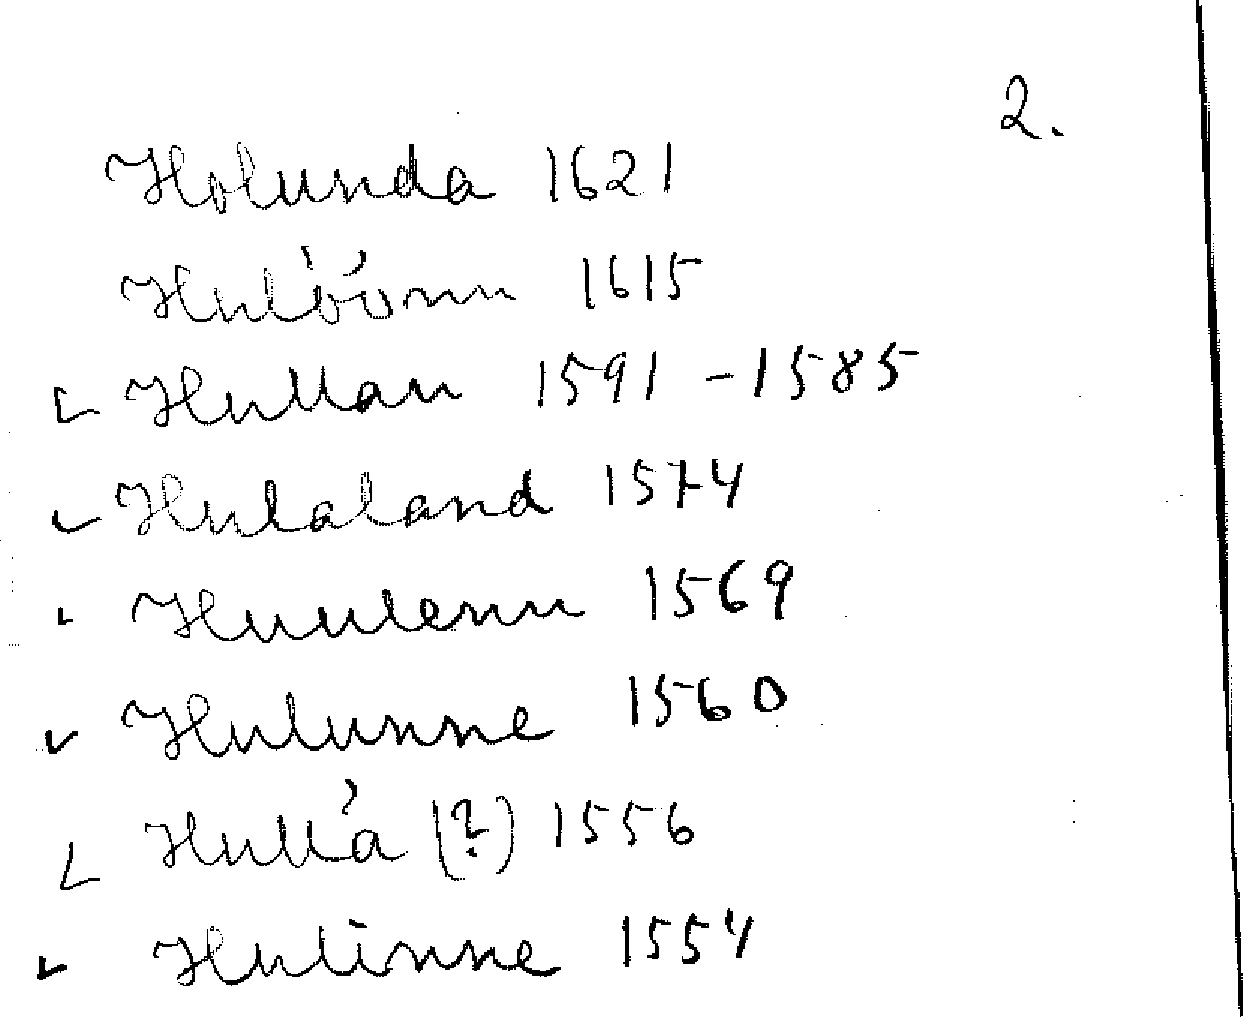 2.
Holunda 1621
Hulöönn 1615
Hullan 1591 - 1585
Hulaland 1574
Huulenn 1569
Hulunne 1560
Hullá (?) 1556
Hulinne 1554